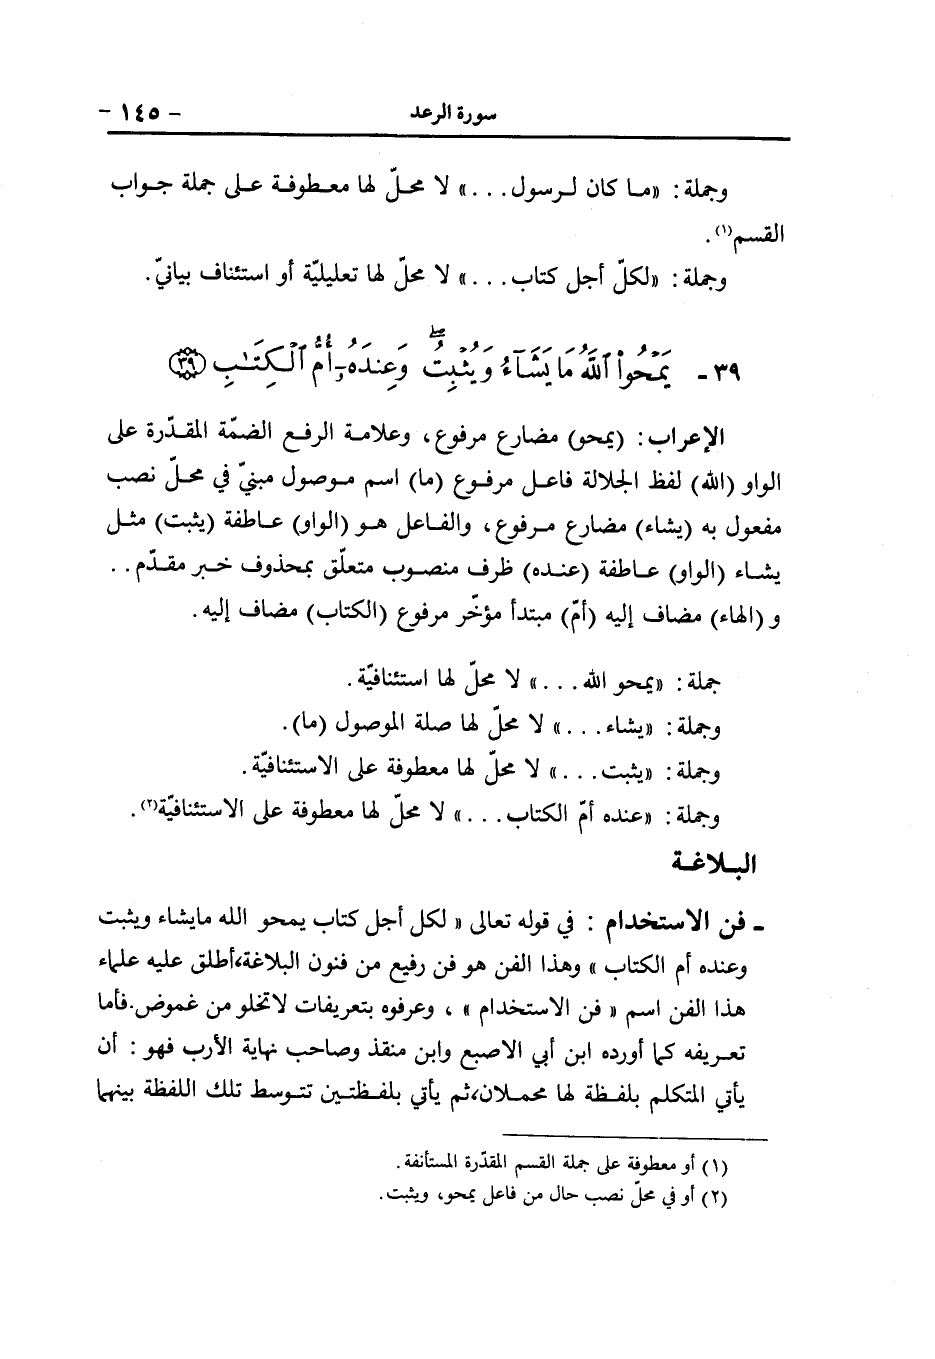 سورة الرعد - ١٤٥ -
وجملة: «ما كان لرسول...» لا محلّ لها معطوفة على جملة جواب
القسم(١).
وجملة: «لكلّ أجل كتاب...» لا محلّ لها تعليليّة أو استئناف بيانيّ.
٣٩- يَمْحُواْ ٱللَّهُ مَا يَشَآءُ وَيُثْبِتُۖ وَعِندَهُۥٓ أُمُّ ٱلْكِتَٰبِ ﴿٣٩﴾
الإعراب: (يمحو) مضارع مرفوع، وعلامة الرفع الضمّة المقدّرة على
الواو (الله) لفظ الجلالة فاعل مرفوع (ما) اسم موصول مبنيّ في محلّ نصب
مفعول به (يشاء) مضارع مرفوع، والفاعل هو (الواو) عاطفة (يثبت) مثل
يشاء (الواو) عاطفة (عنده) ظرف منصوب متعلّق بمحذوف خبر مقدّم..
و (الهاء) مضاف إليه (أمّ) مبتدأ مؤخّر مرفوع (الكتاب) مضاف إليه.
جملة: «يمحو الله...» لا محلّ لها استئنافيّة.
وجملة: «يشاء...» لا محلّ لها صلة الموصول (ما).
وجملة: «يثبت...» لا محلّ لها معطوفة على الاستئنافيّة.
وجملة: «عنده أمّ الكتاب...» لا محلّ لها معطوفة على الاستئنافيّة(٢).
البلاغة
- فن الاستخدام : في قوله تعالى « لكل أجل كتاب يمحو الله مايشاء ويثبت
وعنده أم الكتاب » وهذا الفن هو فن رفيع من فنون البلاغة،أطلق عليه علماء
هذا الفن اسم « فن الاستخدام » ، وعرفوه بتعريفات لاتخلو من غموض.فأما
تعريفه كما أورده ابن أبي الاصبع وابن منقذ وصاحب نهاية الأرب فهو : أن
يأتي المتكلم بلفظة لها محملان،ثم يأتي بلفظتين تتوسط تلك اللفظة بينهما
(١) أو معطوفة على جملة القسم المقدّرة المستأنفة.
(٢) أو في محلّ نصب حال من فاعل يمحو، ويثبت.